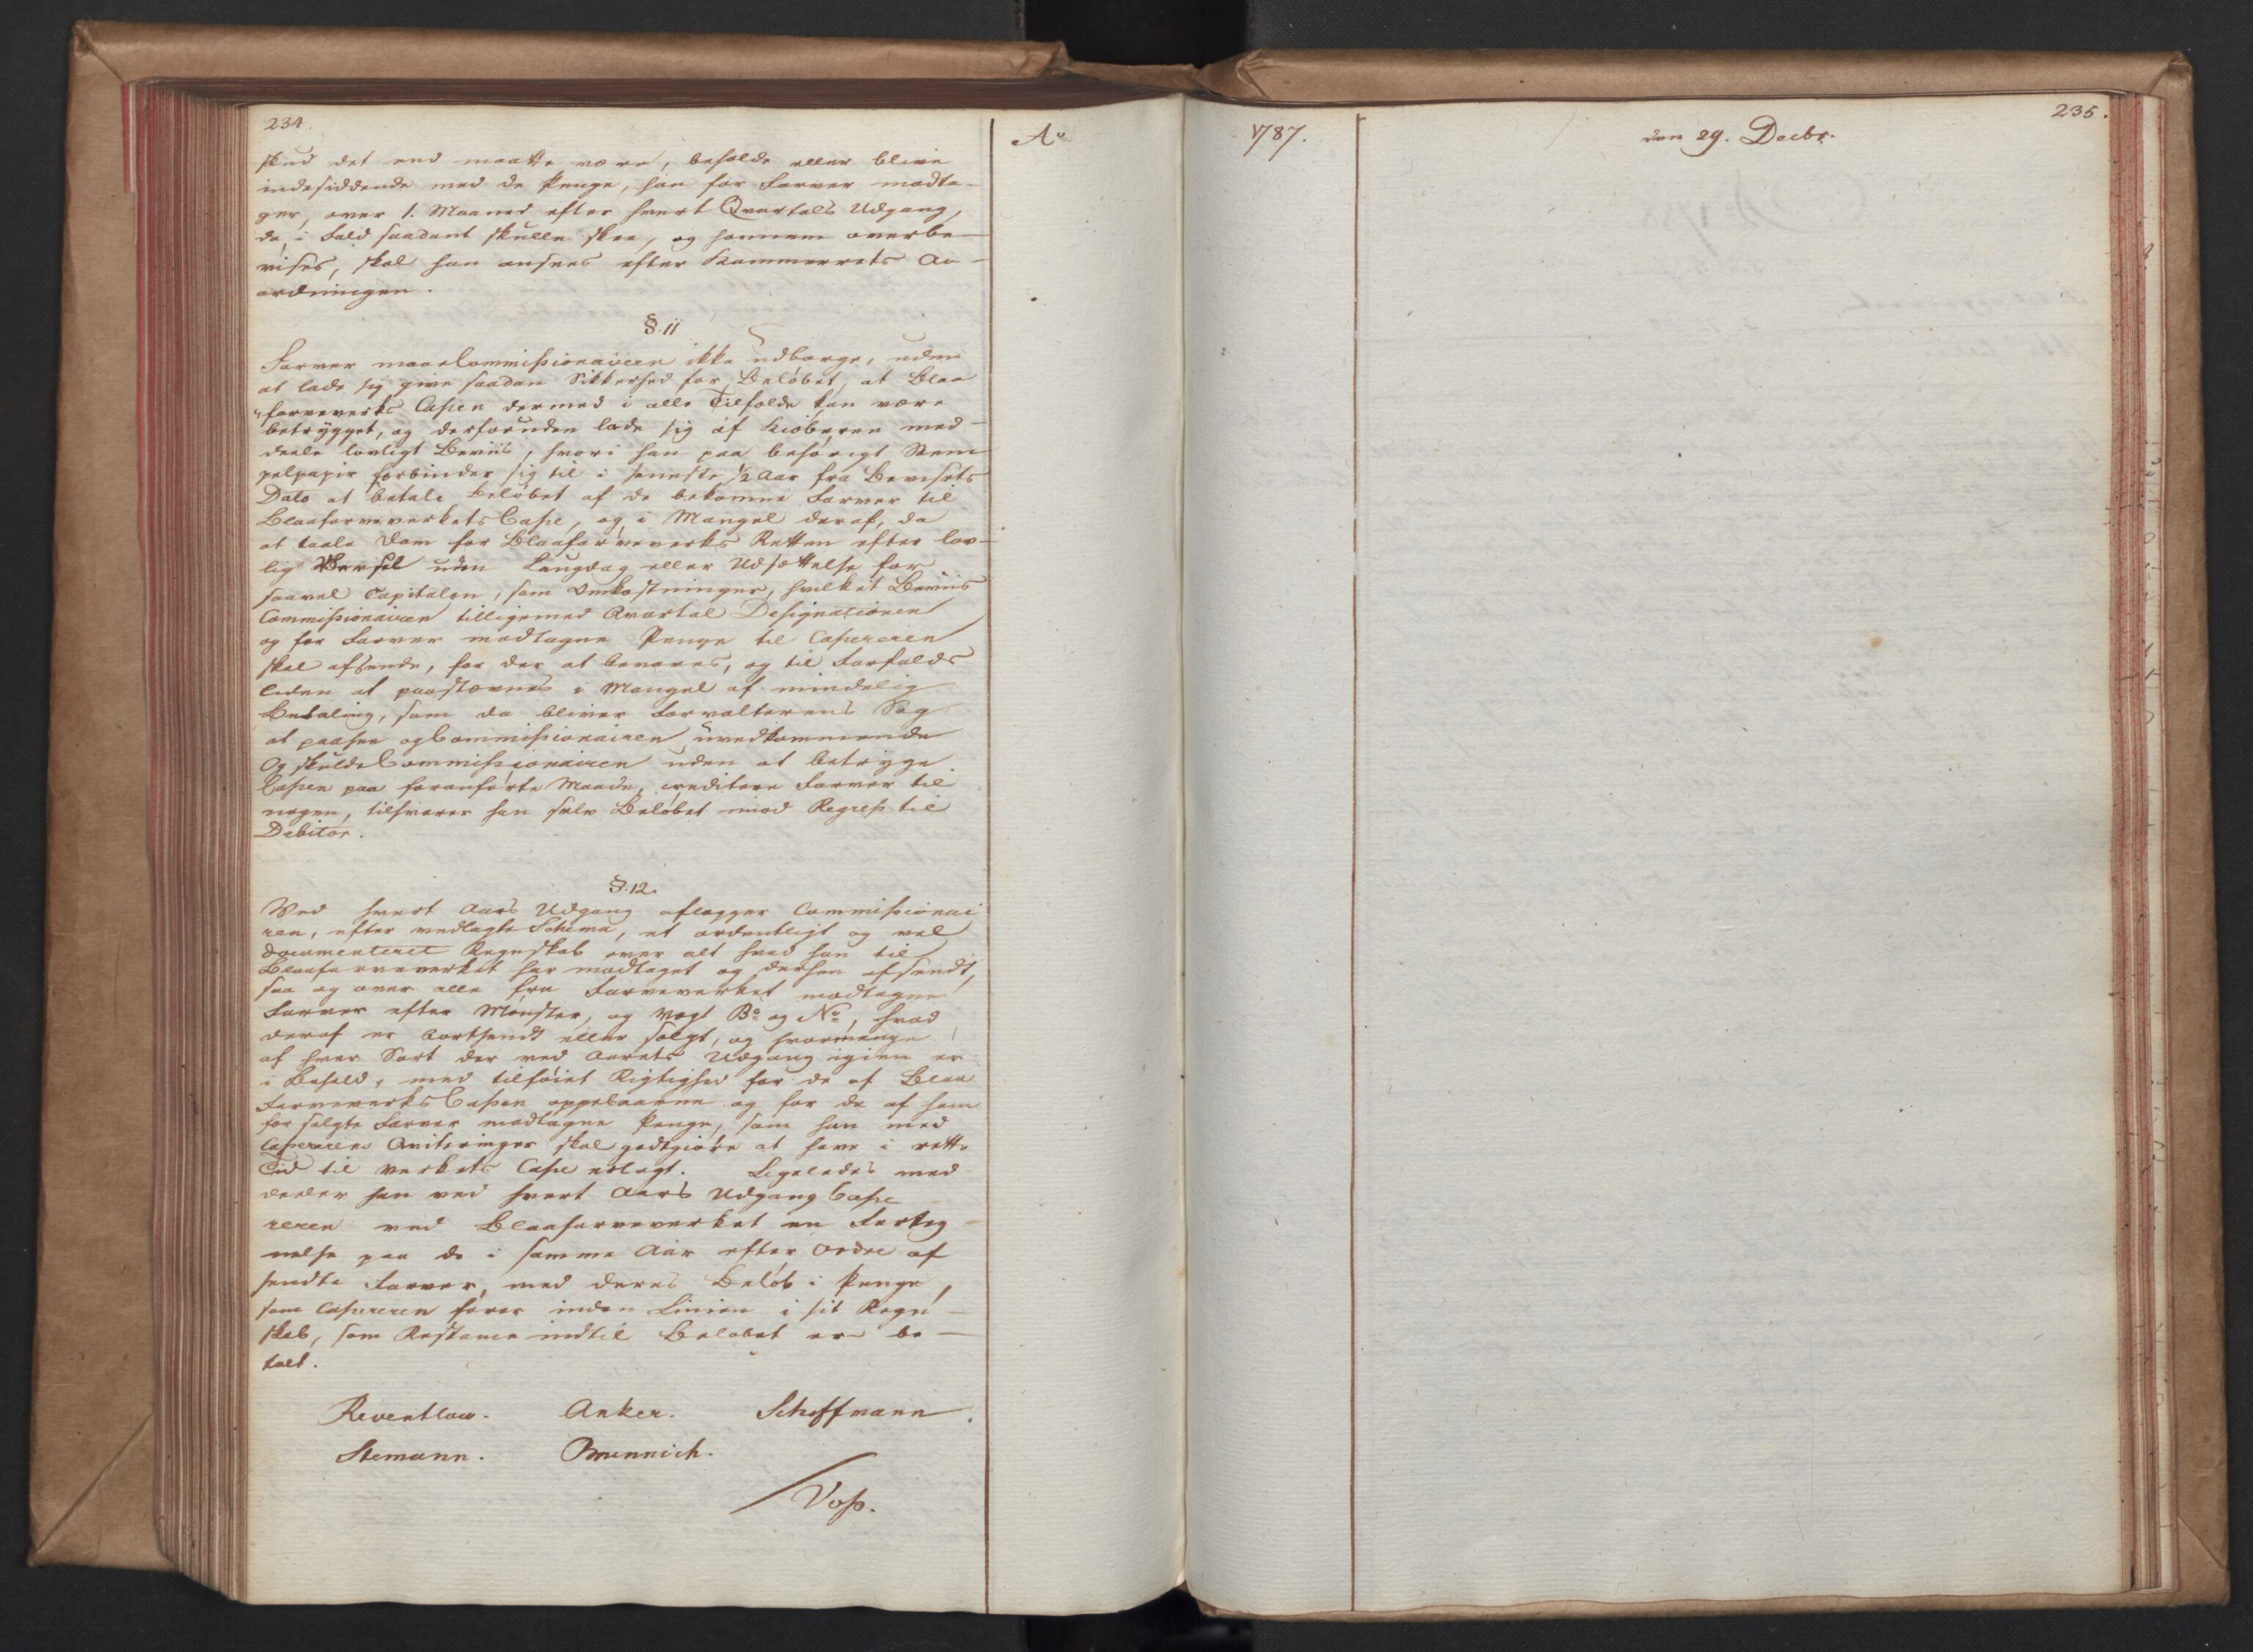 234.
Ao
skud det end maatte være, beholde eller blive
indesiddende med de Penge, han for Farver modta-
ger, over 1. Maaned efter hvert Qvartals Udgang,
da, i Fald saadant skulle skee, og hannem overbe-
vises, skal han ansees efter Kammerrets An-
ordningen.
§. 11
Farver maae Commissionairen ikke udborge, uden
at lade sig give saadan Sikkerhed for Beløbet, at Blaa
farveverks Cassen dermed i alle Tilfælde kan være
betrygget, og derforuden lade sig af Kiøberen med-
deele lovligt Beviis, hvori han paa behørigt Stem
pelpapir forbinder sig til i seneste 1/2 Aar fra Bevisets
Dato at betale Beløbet af de bekomne Farver til
Blaafarveverkets Casse, og i Mangel deraf, da
at taale Dom for Blaafarveverks Retten efter lov-
lig Varsel uden Laugdag eller Udsættelse for
saavel Capitalen, som Omkostninger, hvilket Beviis
Commissionairen tilligemed Qvartal Designationen
og for Farver modtagne Penge til Cassereren
skal afsende, for der at bevares, og til Forfalds
tiden at paastævnes i Mangel af mindelig
Betaling, som da bliver Forvalterens Sag
at paasee og Commissionairen uvedkommende
Og skulde Commissionairen uden at betryge
Cassen paa foranførte Maade, creditere Farver til
nogen, tilsvarer han selv Beløbet mod Regress til
Debitor.
§. 12.
Ved hvert Aars Udgang aflægger Commissionai
ren, efter vedlagte Schema, et ordentligt og vel
documenteret Regnskab over alt hvad han til
Blaafarveverket har modtaget og derhen afsendt,
saa og over alle fra Farveverket modtagne
Farver efter Mønster, og Vægt Bo og No, hvad
deraf er bortsendt eller solgt, og hvormange
af hver Sort der ved Aarets Udgang igien er
i Behold, med tilføiet Rigtighed for de af Blaa
Farveverks Cassen oppebaarne og for de af ham
for solgte Farver modtagne Penge, som han med
Cassererens Qviteringer skal godtgiøre at have i rette
Tid til Verkets Casse erlagt. Ligeledes med
deeler han ved hvert Aars Udgang Casse
reren ved Blaafarveverket en Forteg
nelse paa de i samme Aar efter Ordre af
sendte Farver, med deres Beløb i Penge,
som Cassereren fører inden Linien i sit Regn-
skab, som Restance indtil Beløbet er be-
talt.
Reventlow. Anker. Schoffmann.
Stemann. Brennich.
Voss.
1787.
den 29. Decbr.
235.